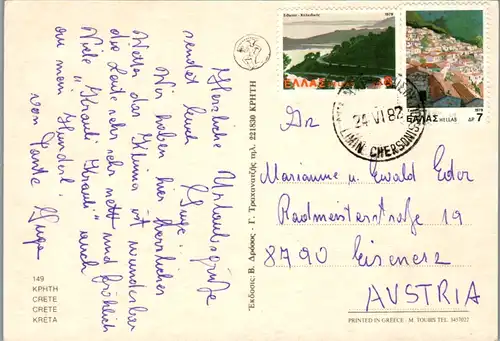 Herrliche Urlaubsgrüße
sendet Euch Inge.
Wir haben hier herrliches
Wetter das Klima ist wunderbar
die Leute sehr sehr nett und fröhlich
Viele "Krauli Krauli" auch
an mein Hunderl.
von Tante Inge
149
ΚΡΗΤΗ
CRETE
CRETE
KRETA
Εκδοσις: Β. Δρόσος - Γ. Τραχανατζής τηλ. 221630 ΚΡΗΤΗ
1979
ΕΛΛΑΣ HELLAS
1979
ΕΛΛΑΣ HELLAS ΔΡ 7
24 VI 82
LIMIN. CHERSONISOU
An
Marianne u. Ewald Eder
Radmeisterstraße 19
8790 Eisenerz
AUSTRIA
PRINTED IN GREECE : M. TOUBIS TEL. 3457022